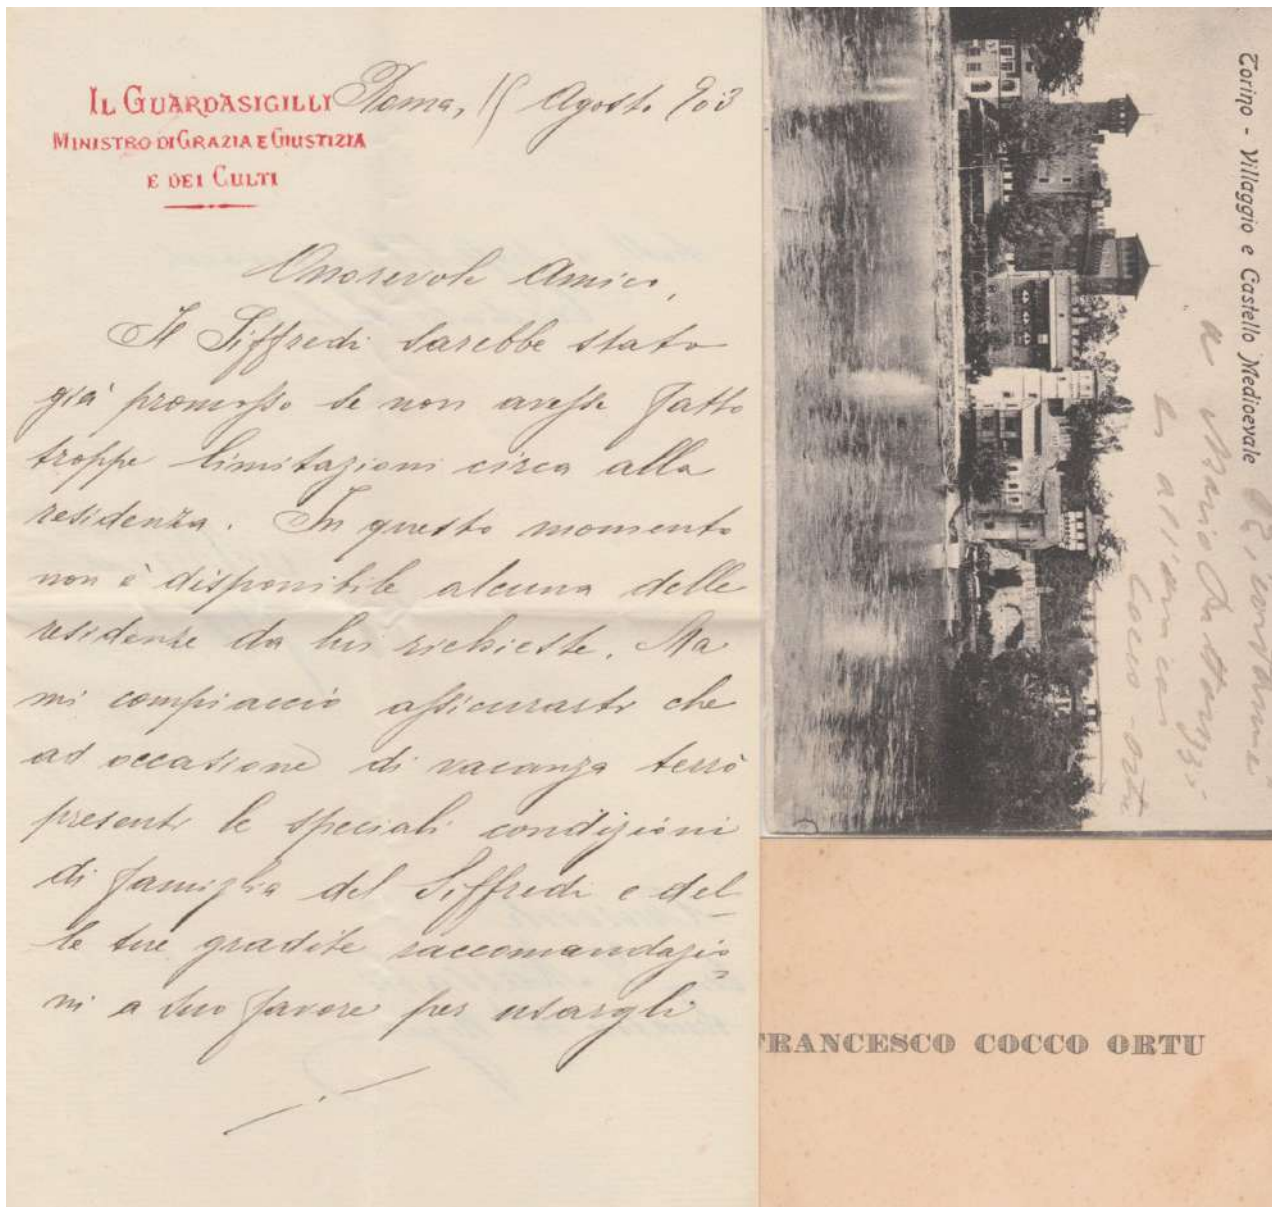 IL GUARDASIGILLI
MINISTRO DI GRAZIA E GIUSTIZIA
E DEI CULTI
Roma, 15 Agosto 903
Onorevole Amico,
Il Siffredi sarebbe stato
già promosso se non avesse fatto
troppe limitazioni circa alla
residenza. In questo momento
non è disponibile alcuna delle
residenze da lui richieste. Ma
mi compiaccio assicurarti che
ad occasione di vacanza terrò
presenti le speciali condizioni
di famiglia del Siffredi e del-
le tue gradite raccomandazio
ni a suo favore per usargli
Torino - Villaggio e Castello Medioevale
a Mario
Cocco-Ortu
FRANCESCO COCCO ORTU